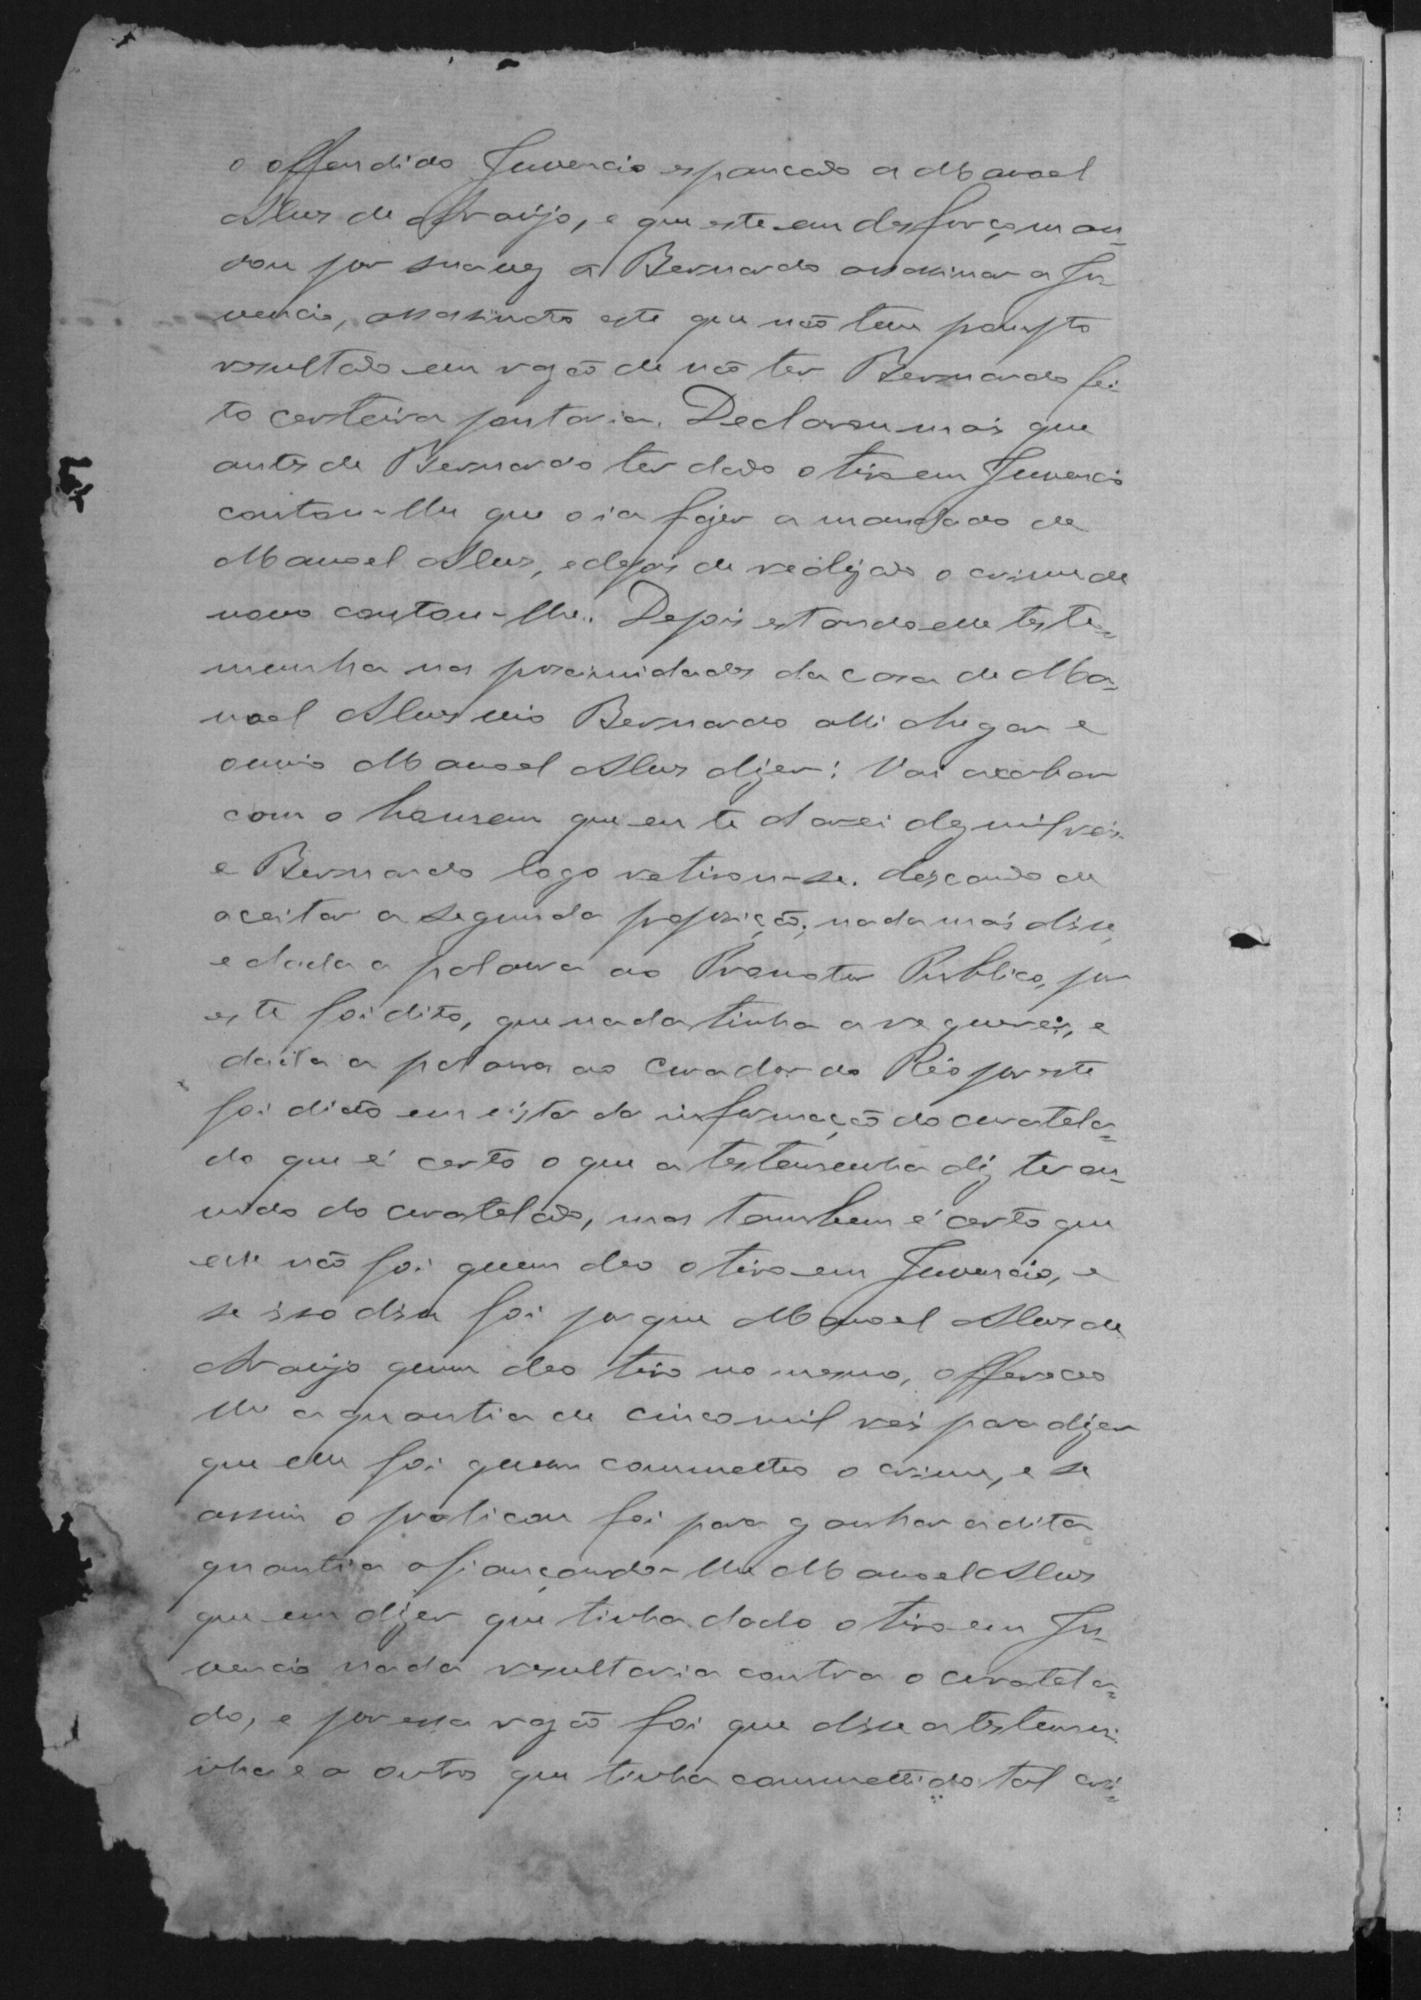 o offendido Juvencio espancado a Manoel
Alves de Araujo, e que este em desforço man-
dou por sua vez a Bernardo assassinar a Ju-
vencio, assassinato este que não teve prompto
resultado em rasão de não ter Bernardo fei-
to certeira pontaria. Declarou mais que
antes de Bernardo ter dado o tiro em Juvencio
contou-lhe que o ia fazer a mandado de
Manoel Alves, e depois de realizado o crime de
novo contou-lhe. Depois estando elle teste-
munha nas proximidades da casa de Ma-
noel Alves vio Bernardo alli chegar e
ouvio Manoel Alves dizer: Vai acabar
com o homem que eu te darei dez mil reis
e Bernardo logo retirou-se. deixando de
aceitar a segunda proposição; nada mais disse,
e dada a palavra ao Promotor Publico, por
este foi dito, que nada tinha a requerer, e
dada a palavra ao Curador do Réo por este
foi dito em vista da informação do curatela-
do que é certo o que a testemunha diz ter ou-
vido do curatelado, mas tambem é certo que
elle não foi quem deo o tiro em Juvencio, e
se isso disse foi porque Manoel Alves de
Araujo quem deo tiro no mesmo, offereceo
lhe a quantia de cinco mil reis para dizer
que elle foi quem commetteo o crime, e se
assim o praticou foi para ganhar a dita
quantia afiançando-lhe Manoel Alves
que em dizer que tinha dado o tiro em Ju-
vencio nada resultaria contra o curatela-
do, e por essa rasão foi que disse a testemu-
nha e a outros que tinha commettido tal cri-